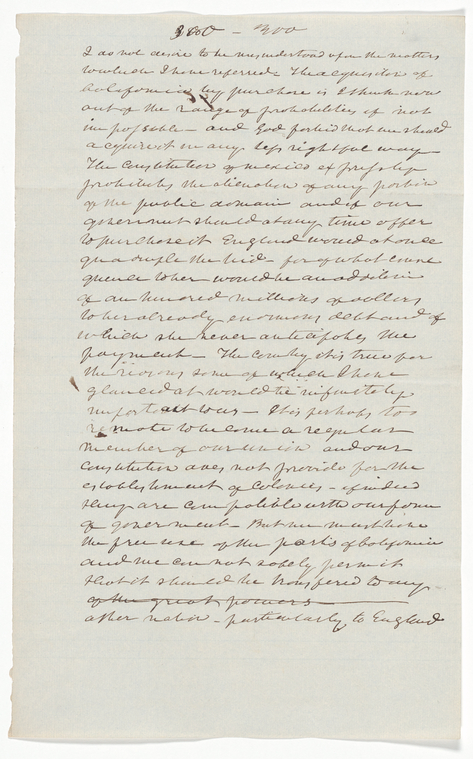 300 - 300
I do not desire to be misunderstood upon the matters
to which I have referred. The acquisition of
California by purchase is I think now
out of the range of probabilities if not
impossible - and God forbid that we should
acquire it in any less rightful way -
The Constitution of Mexico expressly
prohibits the alienation of any portion
of the public domain and if our
government should at any time offer
to purchase it England would at once
quadruple the bid - for of what conse
quence to her would be an addition
of an hundred millions of dollars
to her already enormous debt and of
which she never anticipates the
payment - The country it is true for
the reasons some of which I have
glanced at would be infinitely
important to us - It is perhaps too
remote to become a regular
member of our union and our
Constitution does not provide for the
establishment of Colonies - if indeed
they are compatible with our form
of government - But we must have
the free use of the ports of California
and we can not safely permit
that it should be transferred to any
of the great powers
other nation - particularly to England